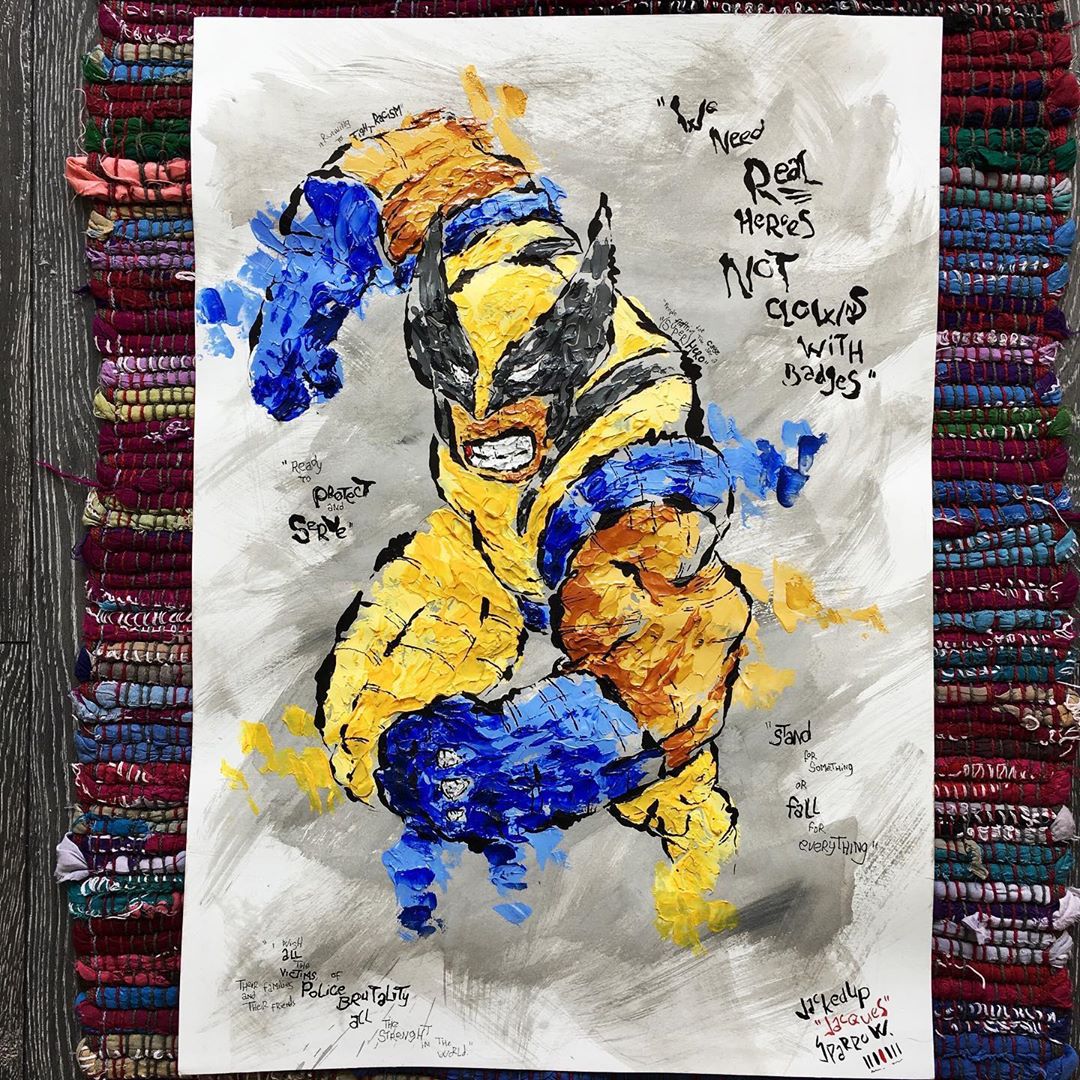 "Running
to
Fight Racism"
"We
Need
Real
Heroes
NOT
CLOWNS
WITH
Badges"
"SUPER HERO"
"Ready
TO
PROTECT
AND
SERVE"
"STAND
FOR
SOMETHING
OR
FALL
FOR
EVERYTHING"
"I WISH
ALL
THE
VICTIMS OF
POLICE BRUTALITY
THEIR FAMILIES
AND
THEIR FRIENDS
ALL
THE
STRENGHT
IN THE
WORLD."
JackedUp
"Jacques"
SPARROW.